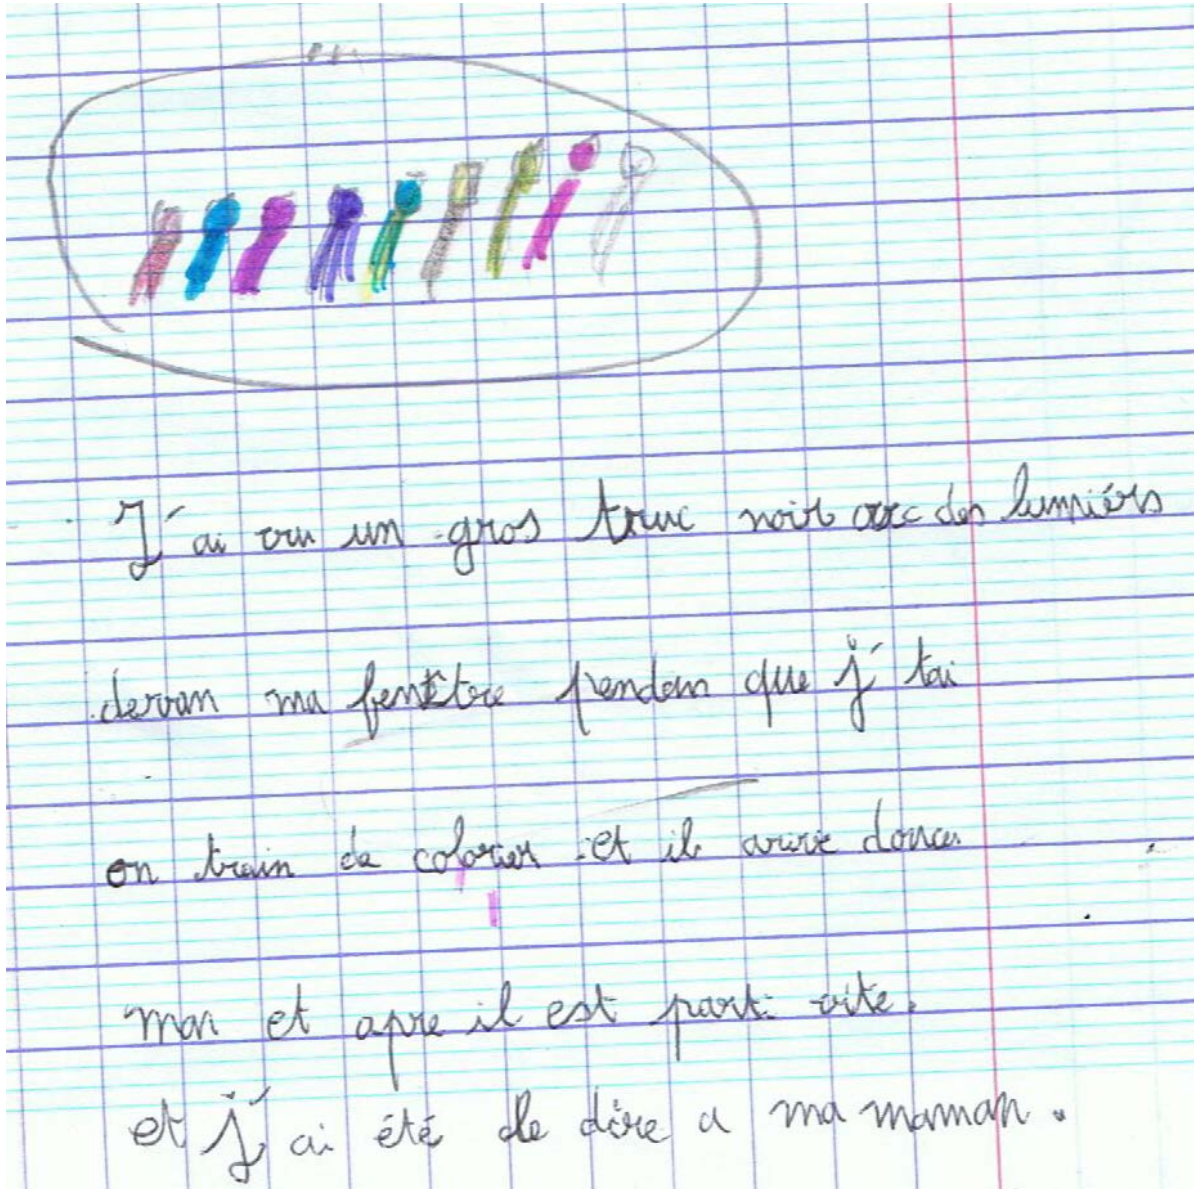 J'ai vu un gros truc noir avec des lumiérs
devan ma fenêtre pendan que j'tai
en train de colorier et il arive douce
man et apre il est parti vite.
et j'ai été le dire a ma maman.